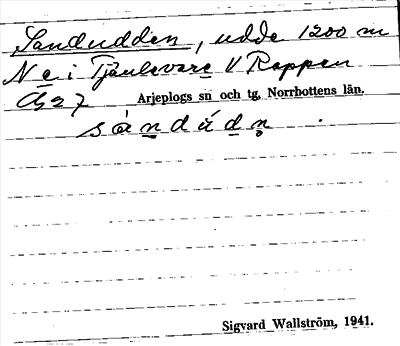 Sandudden, udde 1200 m
N e. i Tjäulevare V Rappen
Åg 27 Arjeplogs sn och tg, Norrbottens län.
sàndúdn.
Sigvard Wallström, 1941.